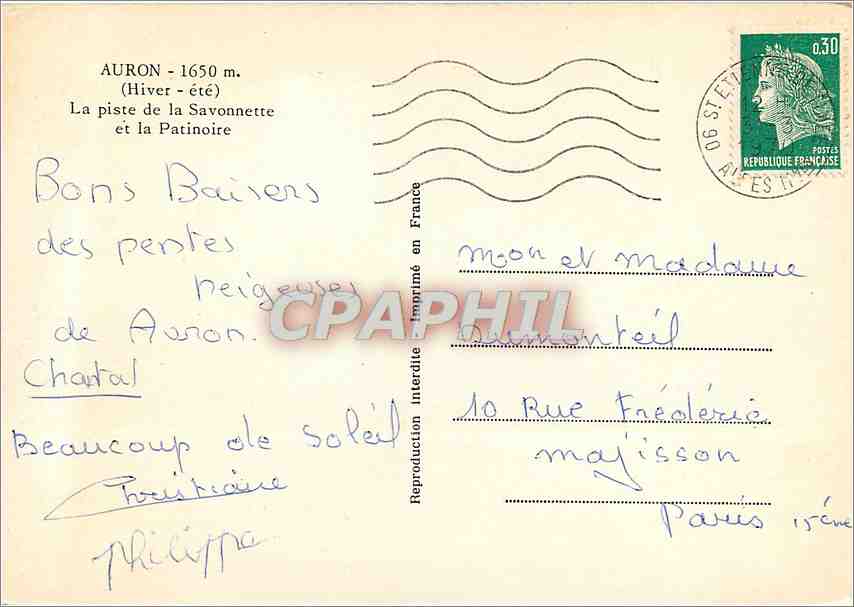 AURON - 1650 m.
(Hiver - été)
La piste de la Savonnette
et la Patinoire
Bons Baisers
des pentes
neigeuses
de Auron.
Chantal
Beaucoup de Soleil
Christiane
Philippe
Reproduction Interdite Imprimé en France
0,30
POSTES
REPUBLIQUE FRANÇAISE
06 ST ETIENNE
CPAPHIL
Mon et Madame
Dumonteil
10 Rue Frédéric
Majisson
Paris 15ème